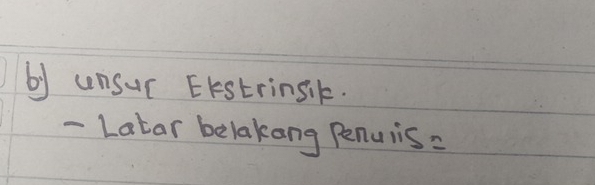 b) unsur Ekstrinsik.
- Latar belakang Penulis =